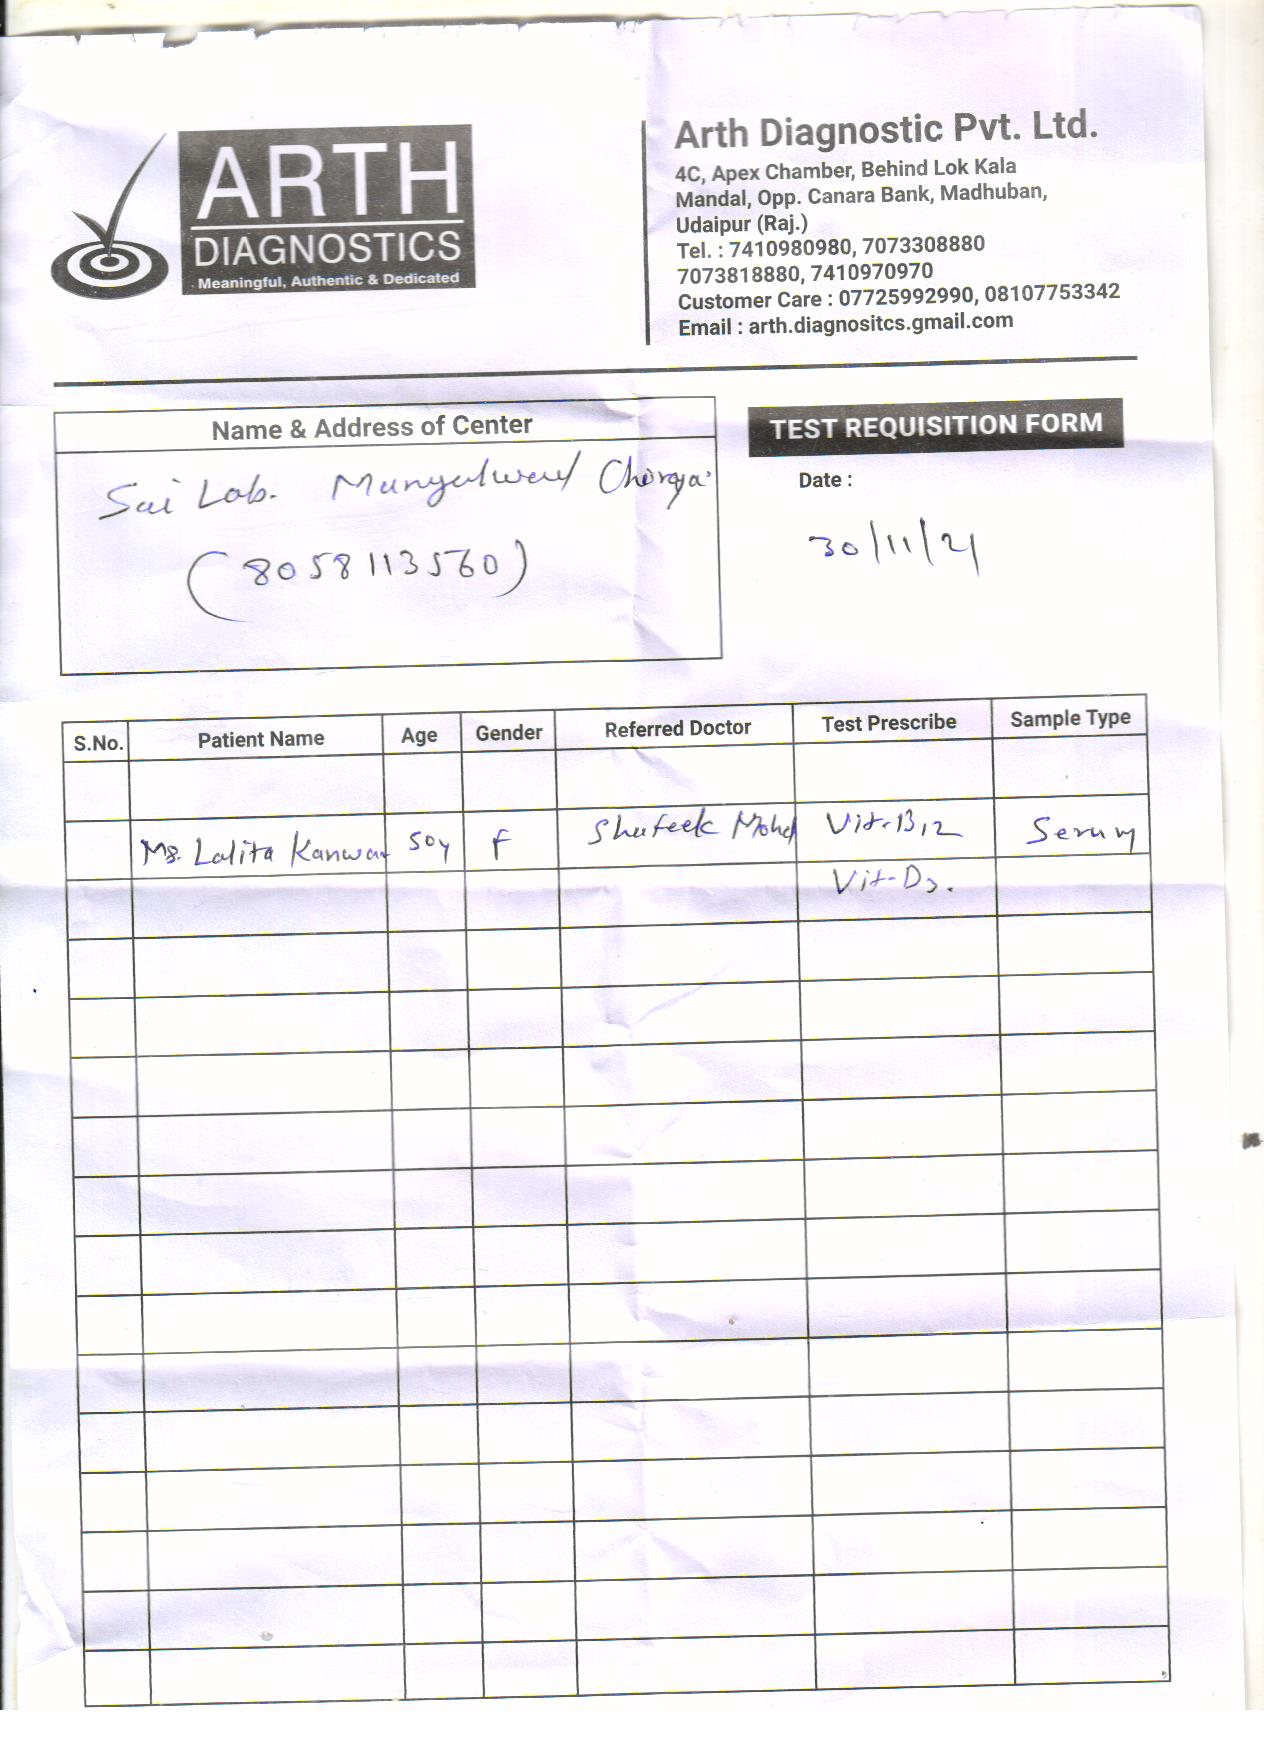 ARTH
DIAGNOSTICS
Meaningful, Authentic & Dedicated
Arth Diagnostic Pvt. Ltd.
4C, Apex Chamber, Behind Lok Kala
Mandal, Opp. Canara Bank, Madhuban,
Udaipur (Raj.)
Tel. : 7410980980, 7073308880
7073818880, 7410970970
Customer Care : 07725992990, 08107753342
Email : arth.diagnositcs.gmail.com
Name & Address of Center
Sai Lab.
(8058113560)
TEST REQUISITION FORM
Date :
30/11/21
S.No. Patient Name Age Gender Referred Doctor Test Prescribe Sample Type
Ms. Lalita Kanwar 50y F Shafeek Mohd Vit-B12 Serum
Vit-D3.